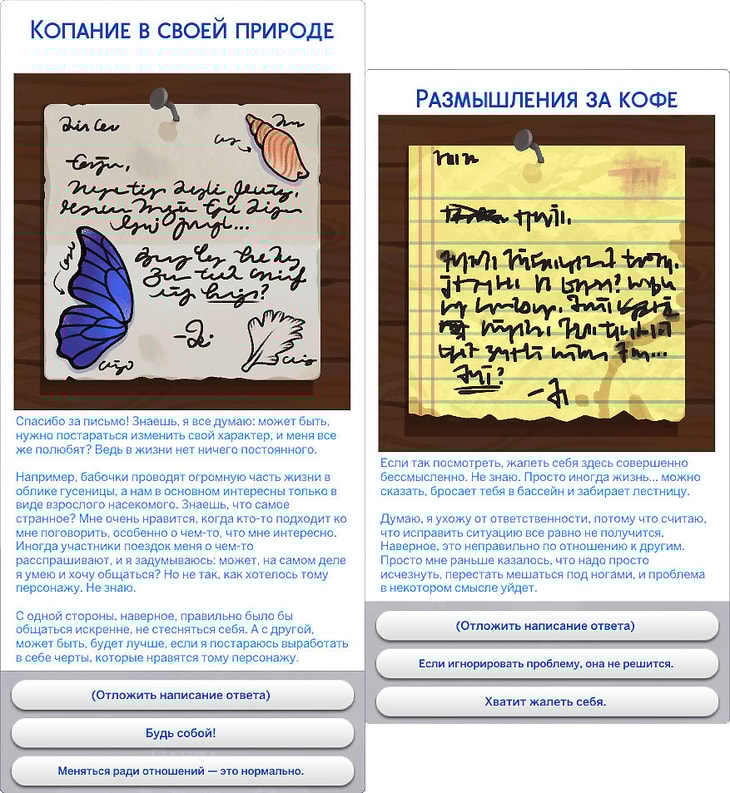 Копание в своей природе
Спасибо за письмо! Знаешь, я все думаю: может быть,
нужно постараться изменить свой характер, и меня все
же полюбят? Ведь в жизни нет ничего постоянного.
Например, бабочки проводят огромную часть жизни в
облике гусеницы, а нам в основном интересны только в
виде взрослого насекомого. Знаешь, что самое
странное? Мне очень нравится, когда кто-то подходит ко
мне поговорить, особенно о чем-то, что мне интересно.
Иногда участники поездок меня о чем-то
расспрашивают, и я задумываюсь: может, на самом деле
я умею и хочу общаться? Но не так, как хотелось тому
персонажу. Не знаю.
С одной стороны, наверное, правильно было бы
общаться искренне, не стесняться себя. А с другой,
может быть, будет лучше, если я постараюсь выработать
в себе черты, которые нравятся тому персонажу.
(Отложить написание ответа)
Будь собой!
Меняться ради отношений — это нормально.
Размышления за кофе
Если так посмотреть, жалеть себя здесь совершенно
бессмысленно. Не знаю. Просто иногда жизнь... можно
сказать, бросает тебя в бассейн и забирает лестницу.
Думаю, я ухожу от ответственности, потому что считаю,
что исправить ситуацию все равно не получится.
Наверное, это неправильно по отношению к другим.
Просто мне раньше казалось, что надо просто
исчезнуть, перестать мешаться под ногами, и проблема
в некотором смысле уйдет.
(Отложить написание ответа)
Если игнорировать проблему, она не решится.
Хватит жалеть себя.